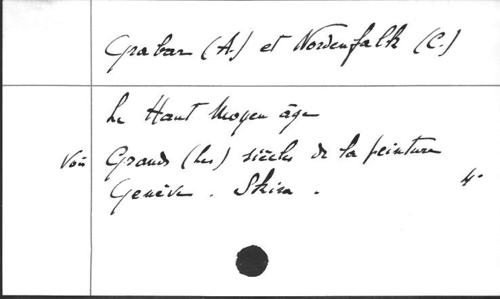 Grabar (A.) et Nordenfalk (C.)
Le Haut Moyen âge
Voir Grands (Les) siècles de la peinture
Genève. Skira. 4°